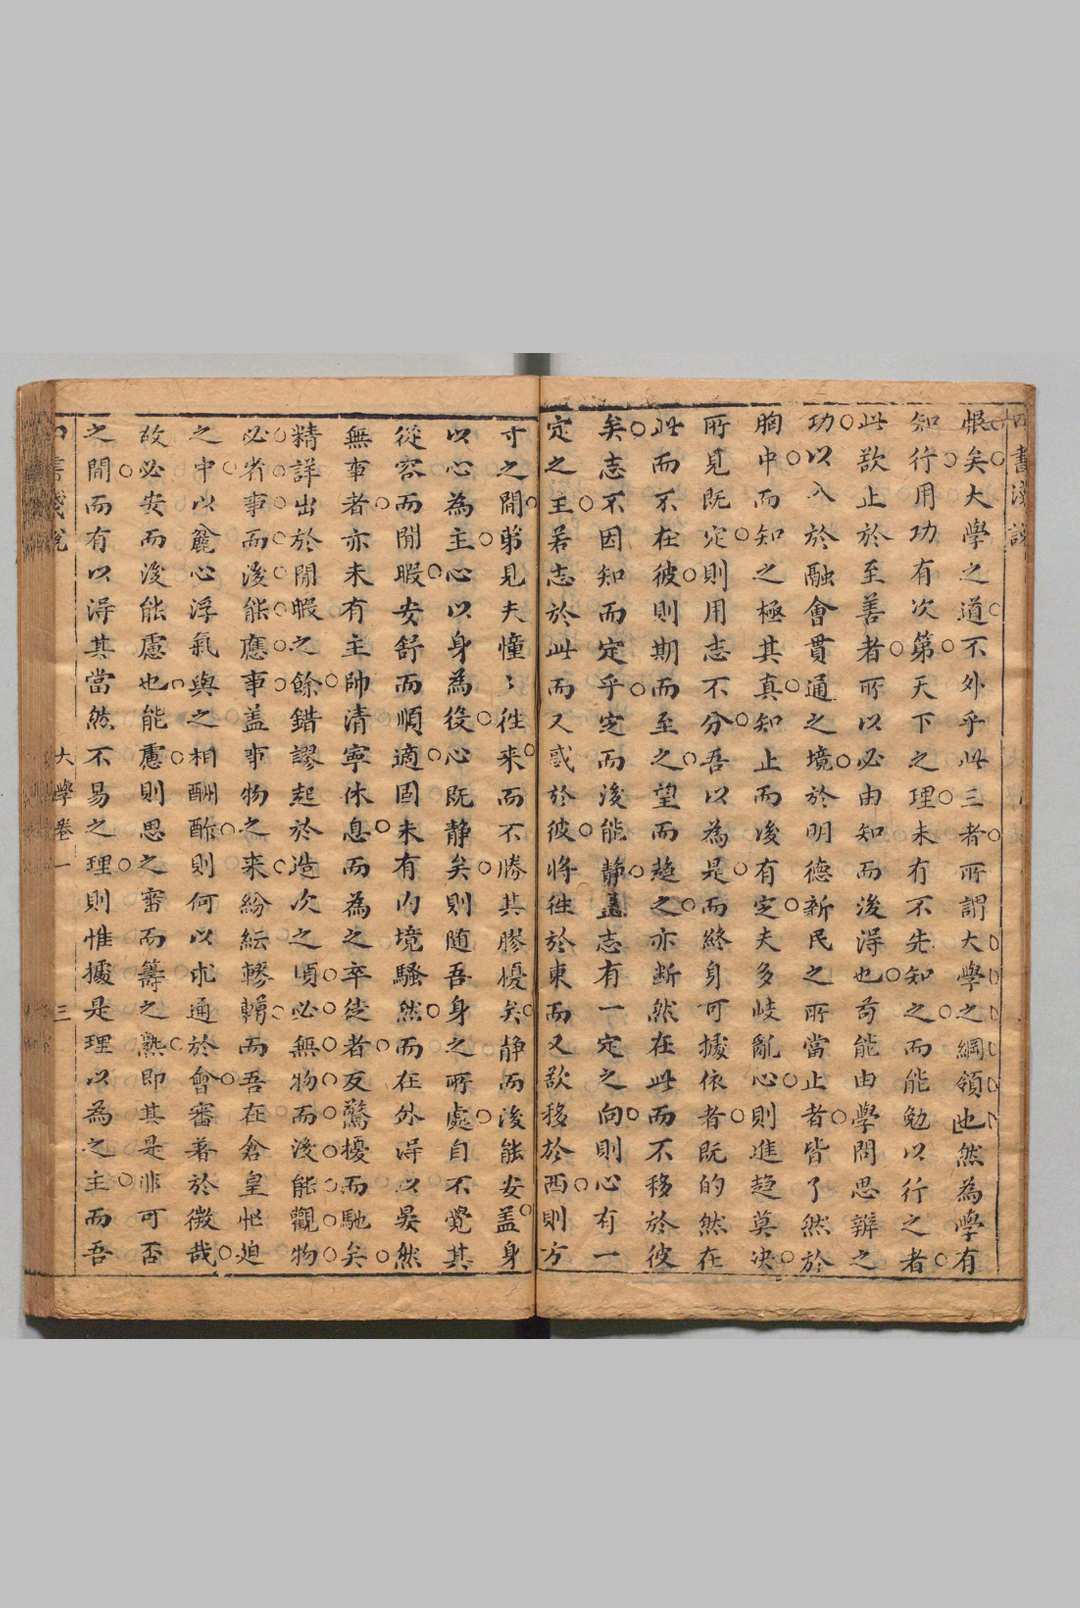 四書淺說
恨矣大學之道不外乎此三者所謂大學之綱領也然為學有
知行用功有次第天下之理未有不先知之而能勉以行之者
此欲止於至善者所以必由知而後得也苟能由學問思辨之
功以入於融會貫通之境於明德新民之所當止者皆了然於
胸中而知之極其真知止而後有定夫多岐亂心則進趋莫决
所見既定則用志不分吾以為是而終身可據依者既的然在
此而不在彼則期而至之望而趋之亦断然在此而不移於彼
矣志不因知而定乎定而後能静盖志有一定之向則心有一
定之主若志於此而又惑於彼將徃於東而又欲移於西則方
寸之間苐見夫憧〻徃来而不勝其膠擾矣静而後能安盖身
以心為主心以身為役心既静矣則随吾身之所處自不覺其
從容而閒暇安舒而順適固未有内境騷然而在外得以晏然
無事者亦未有主帥清寧休息而為之卒徒者反驚擾而馳矣
精詳出於閒暇之餘錯謬起於造次之頃必無物而後能觀物
必省事而後能應事盖事物之来紛紜轇轕而吾在倉皇怱迫
之中以麄心浮氣與之相酬酢則何以求通於會審著於微哉
故必安而後能慮也能慮則思之審而籌之熟即其是非可否
之間而有以得其當然不易之理則惟據是理以為之主而吾
四書淺說 大學卷一 三